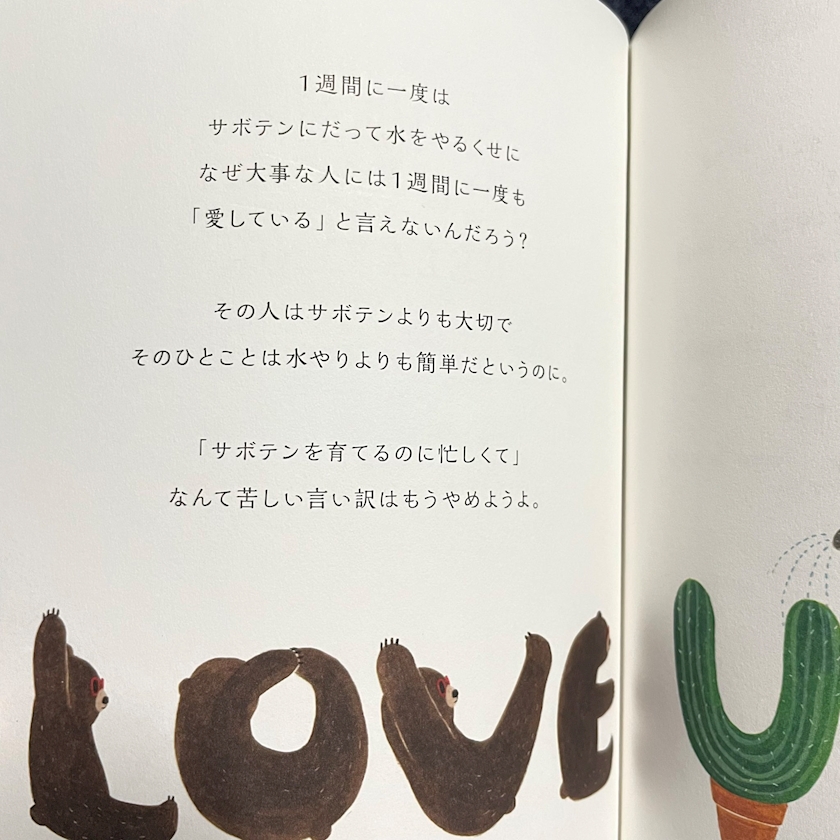 1週間に一度は
サボテンにだって水をやるくせに
なぜ大事な人には1週間に一度も
「愛している」と言えないんだろう?
その人はサボテンよりも大切で
そのひとことは水やりよりも簡単だというのに。
「サボテンを育てるのに忙しくて」
なんて苦しい言い訳はもうやめようよ。
LOVE U